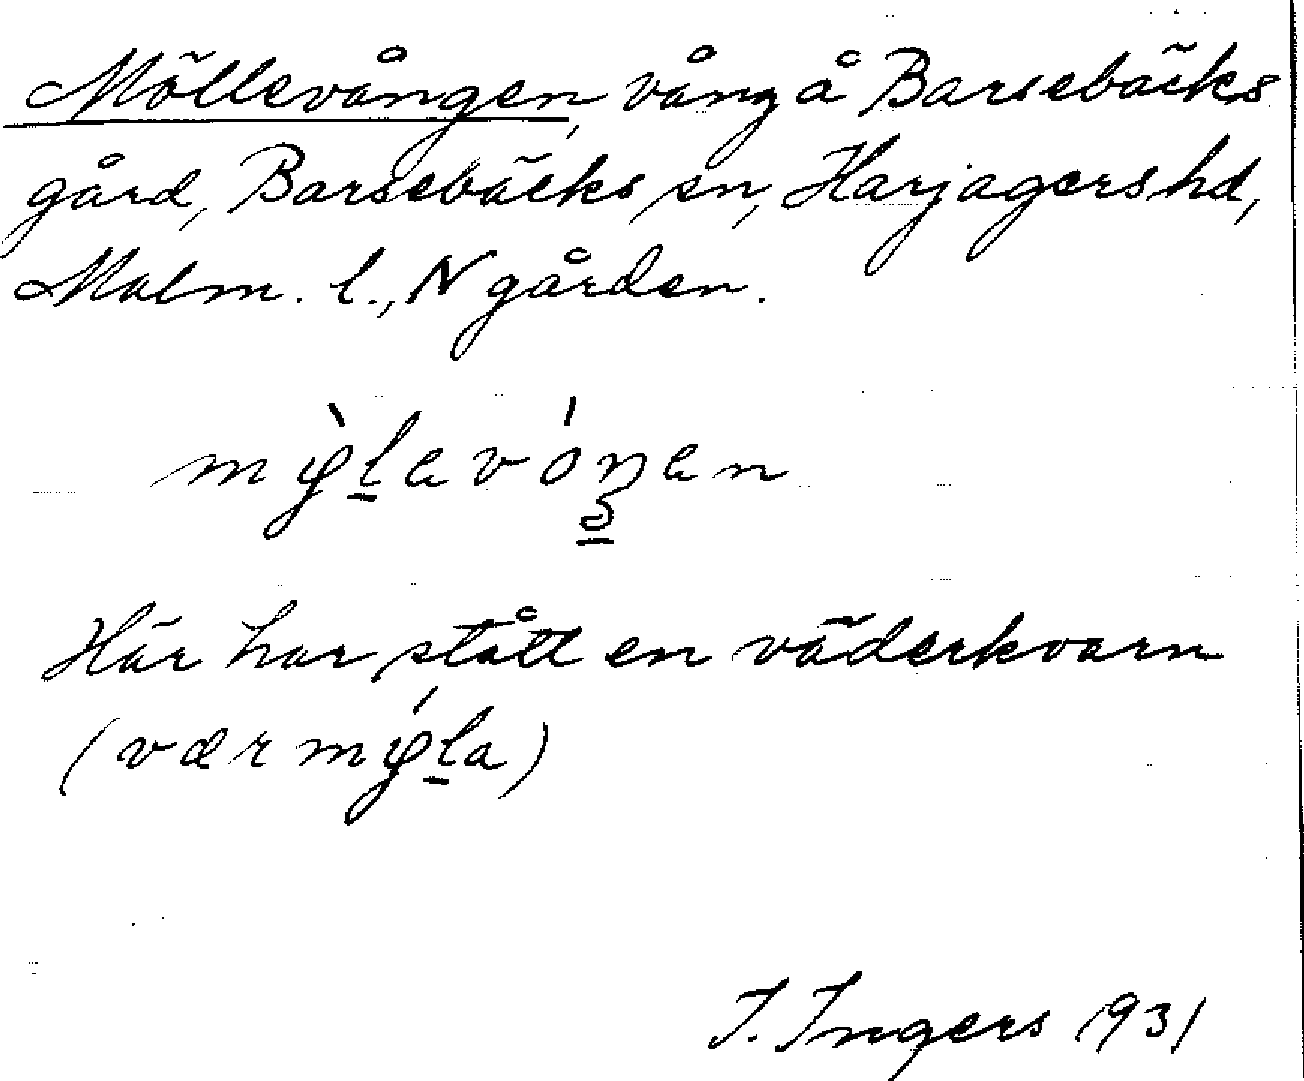 Möllevången, vång å Barsebäcks
gård, Barsebäcks sn, Harjagers hd,
Malm. l., N gården.
Här har stått en väderkvarn
I. Ingers 1931